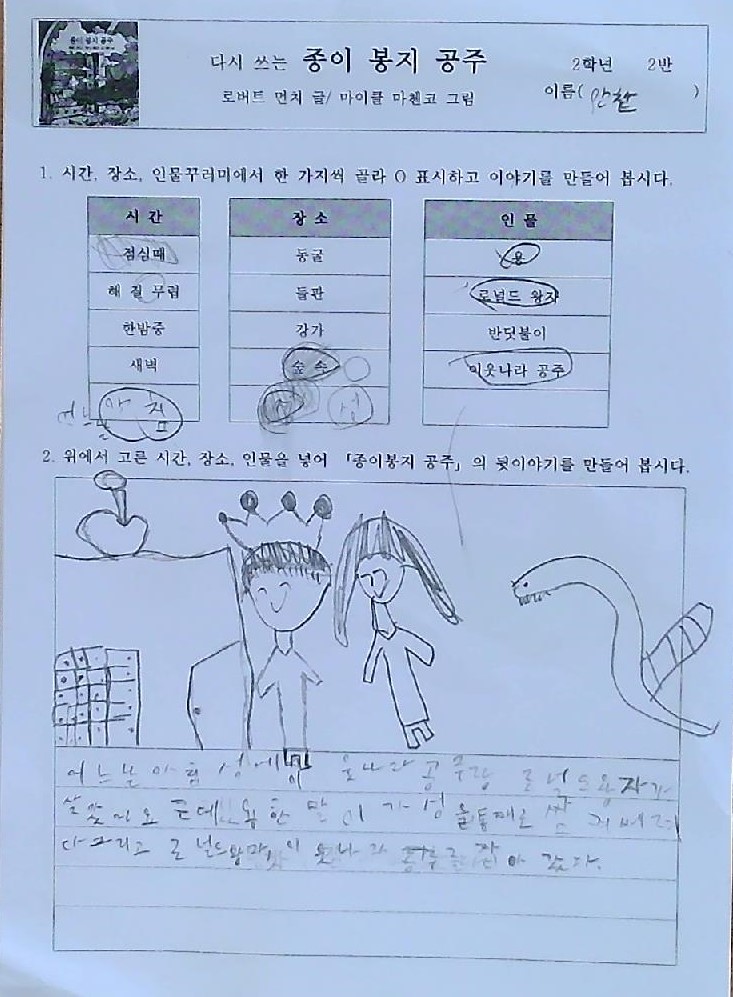 종이 봉지 공주
다시 쓰는 종이 봉지 공주
2학년 2반
로버트 먼치 글/ 마이클 마첸코 그림
이름( 안찬 )
1. 시간, 장소, 인물꾸러미에서 한 가지씩 골라 O 표시하고 이야기를 만들어 봅시다.
시간 장소 인물
점심때 동굴 용
해 질 무렵 들판 로널드 왕자
한밤중 강가 반딧불이
새벽 숲 속 이웃나라 공주
어느날 아침 성 성
2. 위에서 고른 시간, 장소, 인물을 넣어 「종이봉지 공주」의 뒷이야기를 만들어 봅시다.
어느날 아침 성에 웃나라 공주랑 로널드왕자가
살았지요 근데 용 한 말이 가 성을통째로
다그리고 로널드왕자 이웃나라 공주를 잡아 갔다.